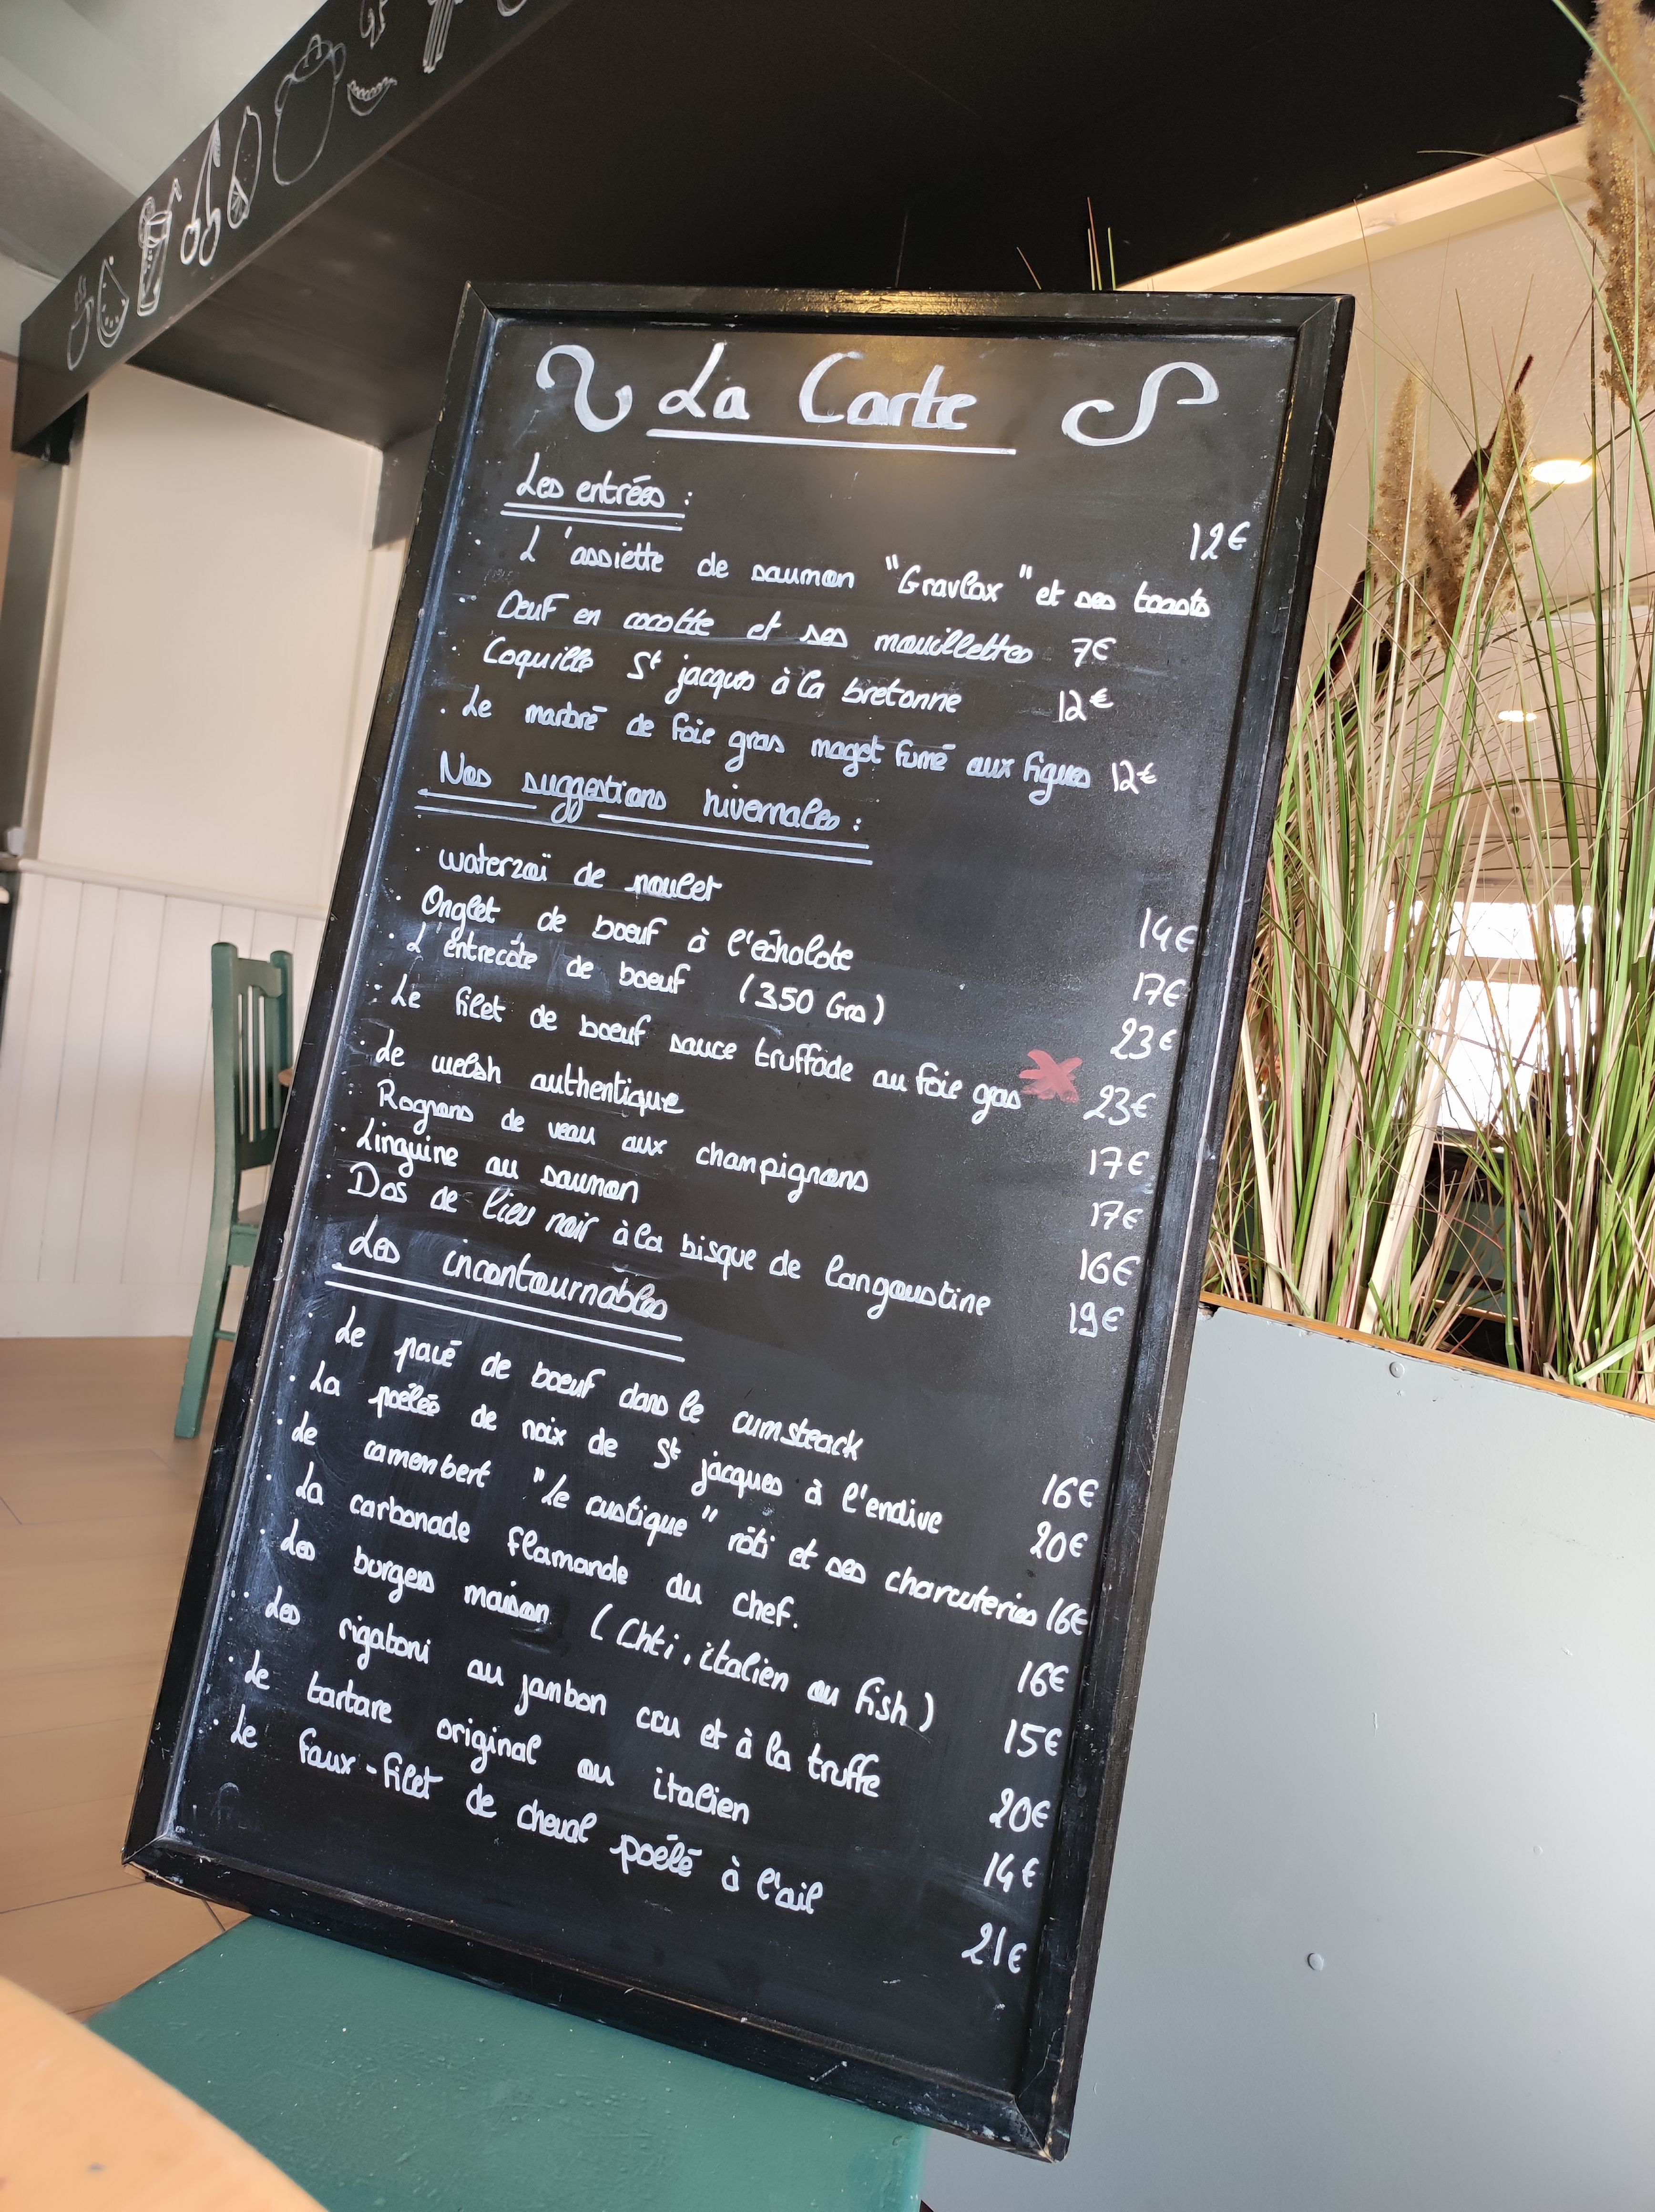 La Carte
Les entrées :
12€
. L'assiette de saumon "Gravlax" et ses toasts
. Oeuf en cocotte et ses mouillettes 7€
. Coquille St jacques à la bretonne 12€
. Le marbré de foie gras magret fumé aux figues 12€
Nos suggestions hivernales :
. waterzoï de poulet 14€
. Onglet de boeuf à l'échalote 17€
. L'entrecôte de boeuf (350 Grs) 23€
. Le filet de boeuf sauce truffade au foie gras 23€
. Le welsh authentique 17€
. Rognons de veau aux champignons 17€
. Linguine au saumon 16€
. Dos de lieu noir à la bisque de langoustine 19€
Les incontournables
. Le pavé de boeuf dans le rumsteack 16€
. La poêlée de noix de St jacques à l'endive 20€
. Le camembert "Le rustique" rôti et ses charcuteries 16€
. La carbonade flamande du chef. 16€
. Les burgers maison (Chti, italien ou fish) 15€
. Les rigatoni au jambon cru et à la truffe 20€
. Le tartare original ou italien 14€
. Le faux-filet de cheval poêlé à l'ail 21€